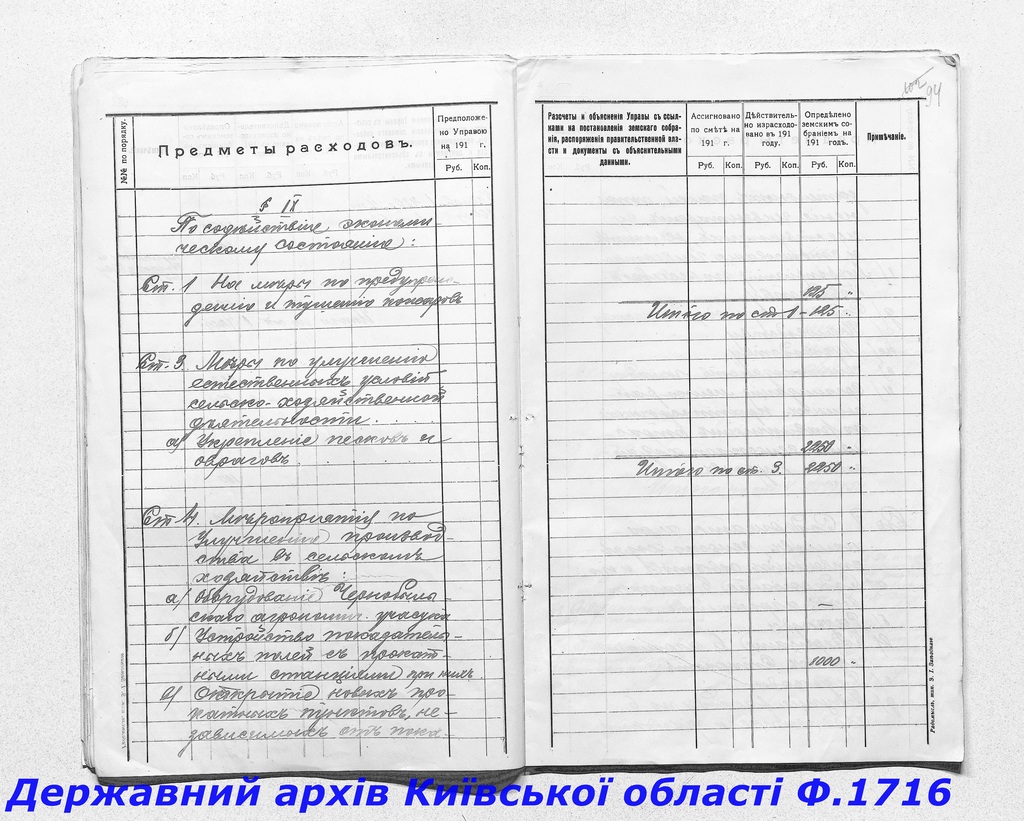 №№ по порядку.
Предметы расходовъ.
Предположе-
но Управою
на 191 г.
Руб. Коп.
§ IX
По содѣйствіе экономи-
ческому состоянію:
Ст. 1 На мѣры по предупреж-
денію и тушенію пожаровъ
Ст. 3. Мѣры по улучшенію
естественныхъ условій
сельско-хозяйственной
дѣятельности.
а) Укрепленіе песковъ и
овраговъ
Ст 4. Мѣропріятія по
улучшенію производ-
ства въ сельскомъ
хозяйствѣ:
а) Оборудованіе Чернобыль-
скаго агрономич. участка
б) Устройство показатель-
ныхъ полей съ прокат-
ными станціями при нихъ
в) Открытіе новыхъ про-
катныхъ пунктовъ, не-
зависимыхъ отъ пока-
94
Разсчеты и объясненія Управы съ ссыл-
ками на постановленія земскаго собра-
нія, распоряженія правительственной вла-
сти и документы съ объяснительными
данными.
Ассигновано
по смѣтѣ на
191 г.
Руб. Коп.
Дѣйствитель-
но израсходо-
вано въ 191
году.
Руб. Коп.
Опредѣлено
земскимъ со-
браніемъ на
191 годъ.
Руб. Коп.
Примѣчаніе.
125 "
Итого по ст 1 - 125 "
2250 "
Итого по ст. 3. 2250 "
—
1000 "
Радомысль, тип.
Державний архів Київської області Ф.1716